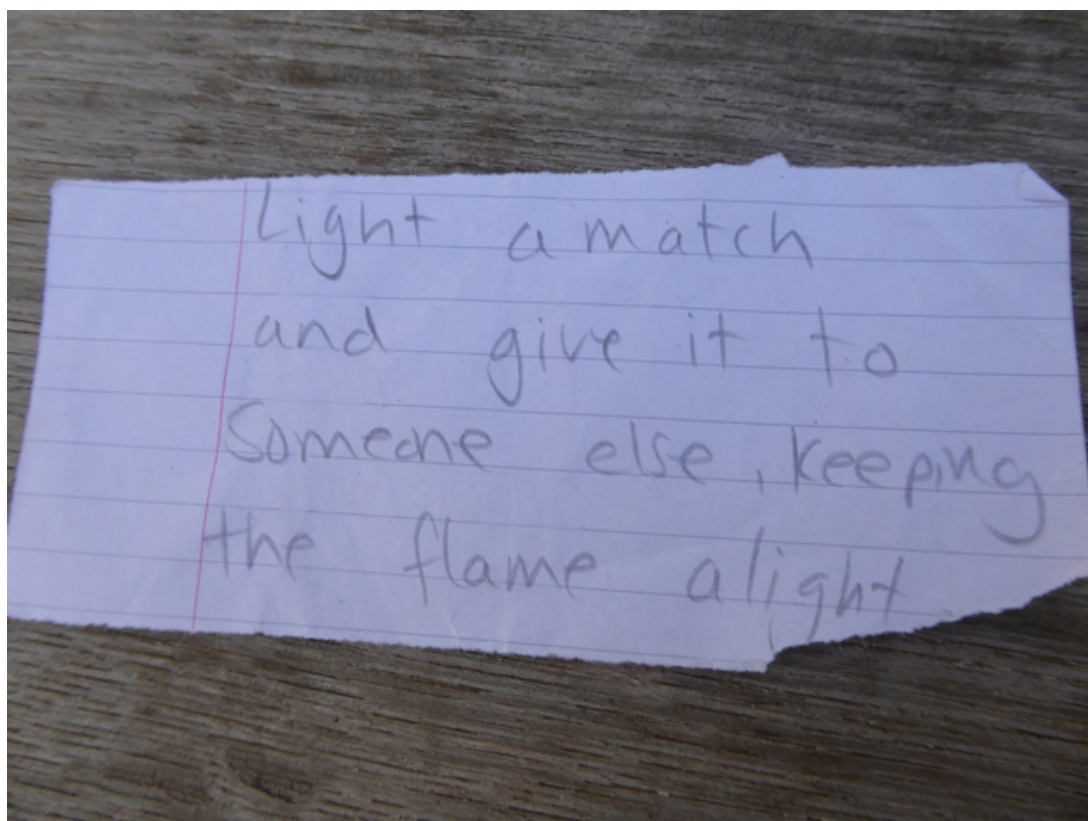 Light a match
and give it to
Someone else, keeping
the flame alight